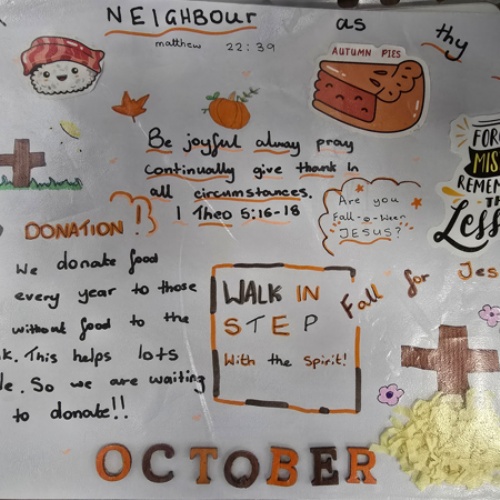 NEIGHBOUR as thy
matthew 22:39
AUTUMN PIES
Be joyful alway pray
continually give thank in
all circumstances.
1 Theo 5:16-18
FOR
MIS
REMEM
TH
Less
Are you
Fall-o-ween
JESUS?
DONATION!
We donate food
every year to those
without food to the
k. This helps lots
le. So we are waiting
to donate!!
WALK IN
STEP
With the Spirit!
Fall for Jes
OCTOBER